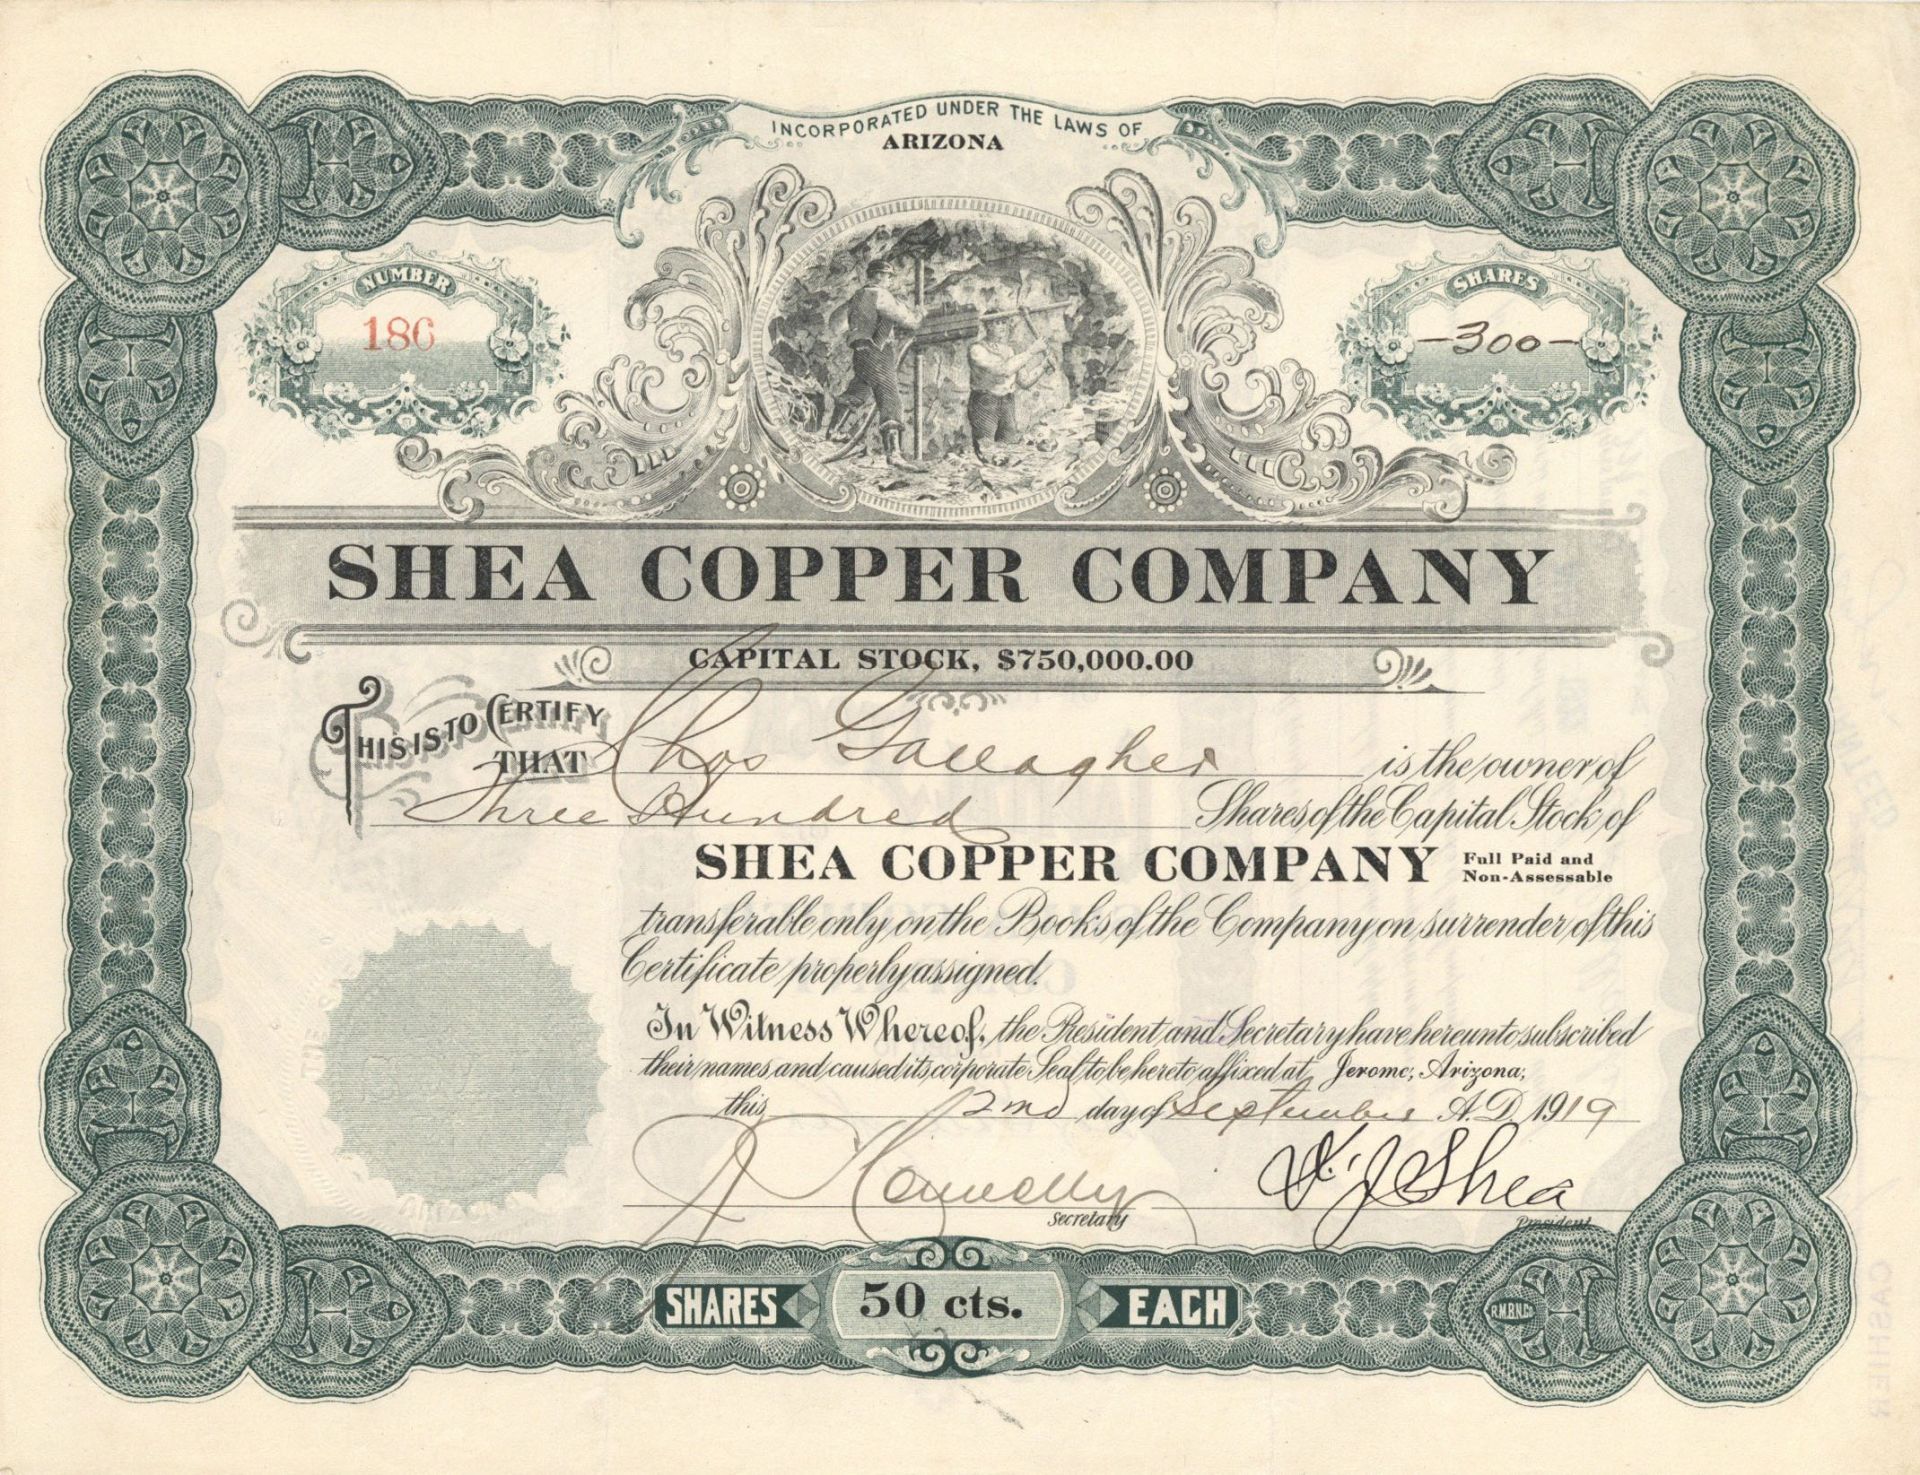 INCORPORATED UNDER THE LAWS OF
ARIZONA
NUMBER
186
SHARES
-300-
SHEA COPPER COMPANY
CAPITAL STOCK, $750,000.00
THIS IS TO CERTIFY
THAT Thos Gallagher is the owner of
Three Hundred Shares of the Capital Stock of
SHEA COPPER COMPANY Full Paid and
Non-Assessable
transferable only on the Books of the Company on surrender of this
Certificate properly assigned.
In Witness Whereof, the President and Secretary have hereunto subscribed
their names and caused its corporate Seal to be hereto affixed at Jerome, Arizona,
this 2nd day of September A.D. 1919
Secretary
J Shea
President
SHARES 50 cts. EACH
CASHIER